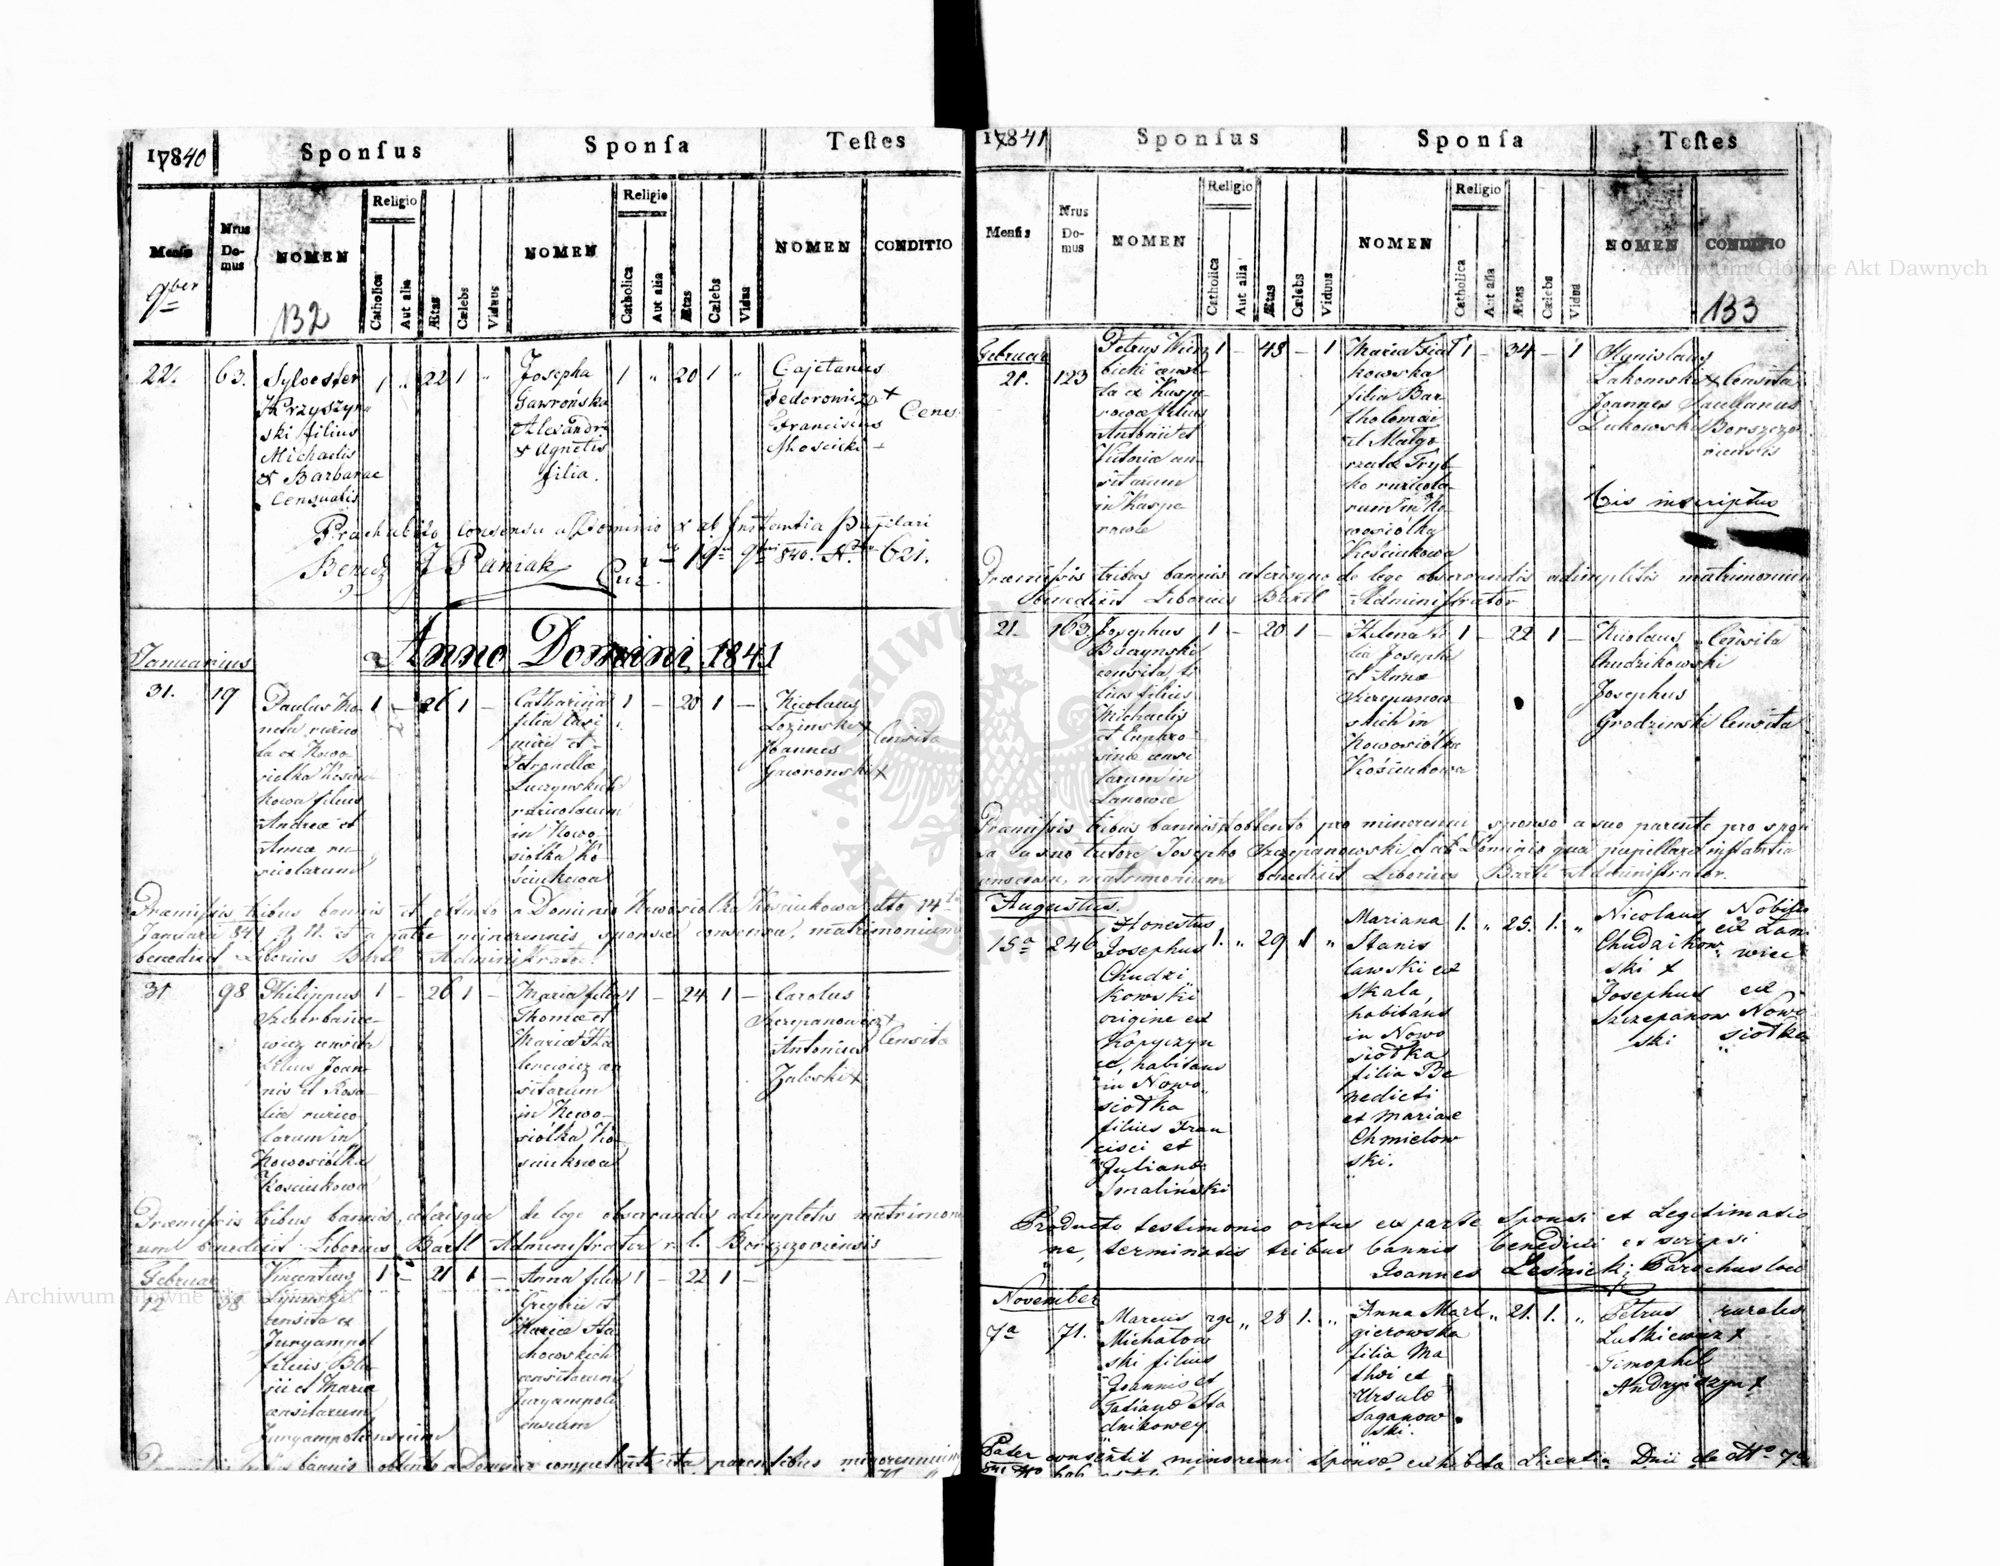 17840
Sponſus
Sponſa
Teſtes
Menſis
9ber
Nrus
Do-
mus
NOMEN
132
Religio
Catholica
Aut alia
Ætas
Cælebs
Viduus
NOMEN
Religio
Catholica
Aut alia
Ætas
Cælebs
Vidua
NOMEN
CONDITIO
22. 63.
Sylvester
Krzyszyn
ski filius
Michaelis
& Barbarae
Censualis
1 " 22 1 "
Josepha
Gawrońska
Alexandri
& Agnetis
filia.
1 " 20 1 "
Cajetanus
Fedorowicz +
Franciscus
Moscicki +
Cens.
Praehabito consensu a Dominio & ab Instantia pupilari
Bened J Paniak Cur. 19 9bri 840. N. 621.
Anno Domini 1841
Januarius
31. 19
Paulus Ko
ruico
la ex Nowo
siolka Kościu
kowa filius
Andreæ et
Annæ ru
ricolarum
1 26 1 –
Catharina
filia Casi
miri et
Petronellæ
Luczynskich
ruricolarum
in Nowo
siólka Ko
ściukowa
1 – 20 1 –
Nicolaus
Lozinski +
Joannes
Gawronski +
Censita
Præmissis tribus bannis et obtento a Dominio Nowosiolka Kościukowa dto 14ta
Januarii 841 et a patre minorennis sponsæ consensu, matrimonium
benedixit Liberius Bartl Administrator.
31 98
Philippus
Szczerbanie-
wicz censita
filius Joan-
nis et Rosa-
liæ rurico
larum in
Nowosiółka
Kosciukowa
1 – 26 1 –
Maria filia
Thomæ et
Mariæ Ka
lenewicz cen
sitarum
in Nowo-
siólka Ko
sciukowa
1 – 24 1 –
Carolus
Szczepanowicz +
Antonius
Zaleski +
Censita
Præmissis tribus bannis, ceterisque de lege observandis adimpletis matrimoni
um benedixit Liberius Bartl Administrator r. l. Borszczoviensis
Februar
12 38
Vincentius
Lipinski
censita ex
Juryampol
filius Bla-
sii et Maria
censitarum
Juryampolensium
1 – 21 1 –
Anna filia
Gregorii et
Mariæ Sta
chowskich
censitarum
Juryampoli
ensium
1 – 22 1 –
bannis obtento a Dominio competente ita parentibus minorennium
17841
Sponſus
Sponſa
Teſtes
Menſis
Nrus
Do-
mus
NOMEN
Religio
Catholica
Aut alia
Ætas
Cælebs
Viduus
NOMEN
Religio
Catholica
Aut alia
Ætas
Cælebs
Vidua
NOMEN
CONDITIO
133
Februar
21. 123
Petrus Wierz
bicki censi-
ta ex Kaspe
rowce filius
Antonii et
Victoriæ cen
sitarum
in Kaspe
rowce
1 – 43 – 1
Maria Fiał
kowska
filia Bar
tholomæi
et Malgo
rzata Tryb-
ko ruricola
rum in No
wosiólka
Kościukowa
1 – 34 – 1
Stanislaus
Lakomski + Censita
Joannes
Lukowski Borszczo-
viensis
bis inscriptus
Præmissis tribus bannis ceterisque de lege observandis adimpletis matrimonium
benedixit Liberius Bartl Administrator
21. 163
Josephus
Buczynski
censita
filius
Michaelis
et Euphro
sinæ censi
tarum in
Lanowce
1 – 20 1 –
Helena fi
lia Josephi
et Annæ
Szczepanow
skich in
Nowosiólka
Kościukowa
1 – 22 1 –
Nicolaus Censita
Chudzikowski
Josephus
Grodzinski Censita
Præmissis tribus bannis obtento pro minorenni sponso a suo parente pro spon
sa a suo tutore Josepho Szczepanowski et ab Dominio qua pupillari instantia
consensu, matrimonium benedixit Liberius Bartl Administrator.
Augustus.
15a 246
Honestus
Josephus
Chudzi
kowski
origine ex
Kopyczyn
ce, habitans
in Nowo
siołka
filius Fran
cisci et
Julianæ
Smalinski
1. " 29 1 "
Mariana
Stanis
lawski ex
Skala,
habitans
in Nowo
siołka
filia Be
nedicti
et Mariæ
Chmielow
ski.
1. " 25. 1. "
Nicolaus Nobilis
Chudzikow ex Łano
ski + wiec
Josephus ex
Szczepanow Nowo
ski siołka
Producto testimonio ortus ex parte Sponsi et Legitimatio
ne, terminatis tribus bannis benedixi et scripsi
Joannes Leśnicki Parochus loci
November
7a 71.
Marcus
Michałow
ski filius
Joannis et
Tatianæ Sta
dnikowey
rgc " 28 1. "
Anna Mart
gierowska
filia Ma
thei et
Ursulæ
Saganow
ski.
1 " 21. 1. "
Petrus ruralis
Lutkiewicz +
Timophil
Andryiszyn +
Pater consentit minorenni Sponsæ exhibita Licentia Dnii de dto 7a
Archiwum Główne Akt Dawnych
Archiwum Główne Akt Dawnych